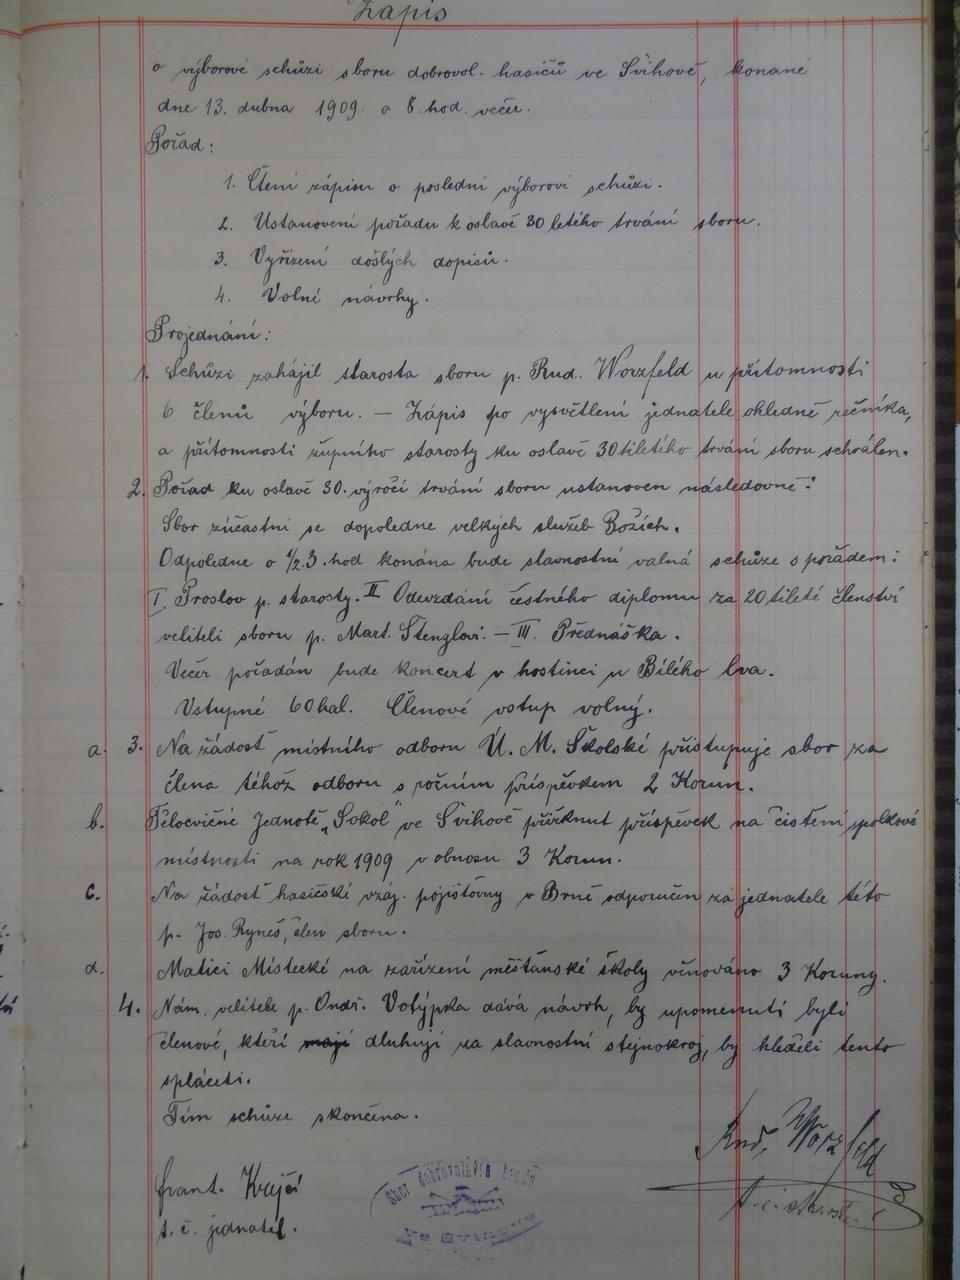 Zápis
o výborové schůzi sboru dobrovol. hasičů ve Švihově, konané
dne 13. dubna 1909. o 8. hod. večer.
Pořad:
1. Čtení zápisu o poslední výborové schůzi.
2. Ustanovení pořadu k oslavě 30 letého trvání sboru.
3. Vyřízení došlých dopisů.
4. Volné návrhy.
Projednání:
1. Schůzi zahájil starosta sboru p. Rud. Worzfeld u přítomnosti
6 členů výboru. — Zápis po vysvětlení jednatele ohledně řečníka,
a přítomnosti župního starosty ku oslavě 30tiletého trvání sboru schválen.
2. Pořad ku oslavě 30. výročí trvání sboru ustanoven následovně:
Sbor zúčastní se dopoledne velkých služeb Božích.
Odpoledne o 1/2 3. hod konána bude slavnostní valná schůze s pořadem:
I. Proslov p. starosty. II Odevzdání čestného diplomu za 20tileté členství
veliteli sboru p. Mart. Štenglovi. — III. Přednáška.
Večer pořádán bude koncert v hostinci u Bílého lva.
Vstupné 60 hal. Členové vstup volný.
a. 3. Na žádosť místního odboru Ú. M. Školské přistupuje sbor za
člena téhož odboru s ročním příspěvkem 2 Korun.
b. Tělocvičné Jednotě „Sokol" ve Švihově přiřknut příspěvek na čistění spolkové
místnosti na rok 1909 v obnosu 3 Korun.
c. Na žádosť hasičské vzáj. pojišťovny v Brně odporučen za jednatele této
p. Jos. Ryneš, člen sboru.
d. Matici Místecké na zařízení měšťanské školy věnováno 3 Koruny.
4. Nám. velitele p. Ondř. Votýpka dává návrh, by upomenuti byli
členové, kteří mají dluhují za slavnostní stejnokroj, by hleděli tento
spláceti.
Tím schůze skončena.
Rud. Worzfeld
t. č. starosta.
Frant. Krejčí
t. č. jednatel.
Sbor dobrovolných hasičů
ve Švihově